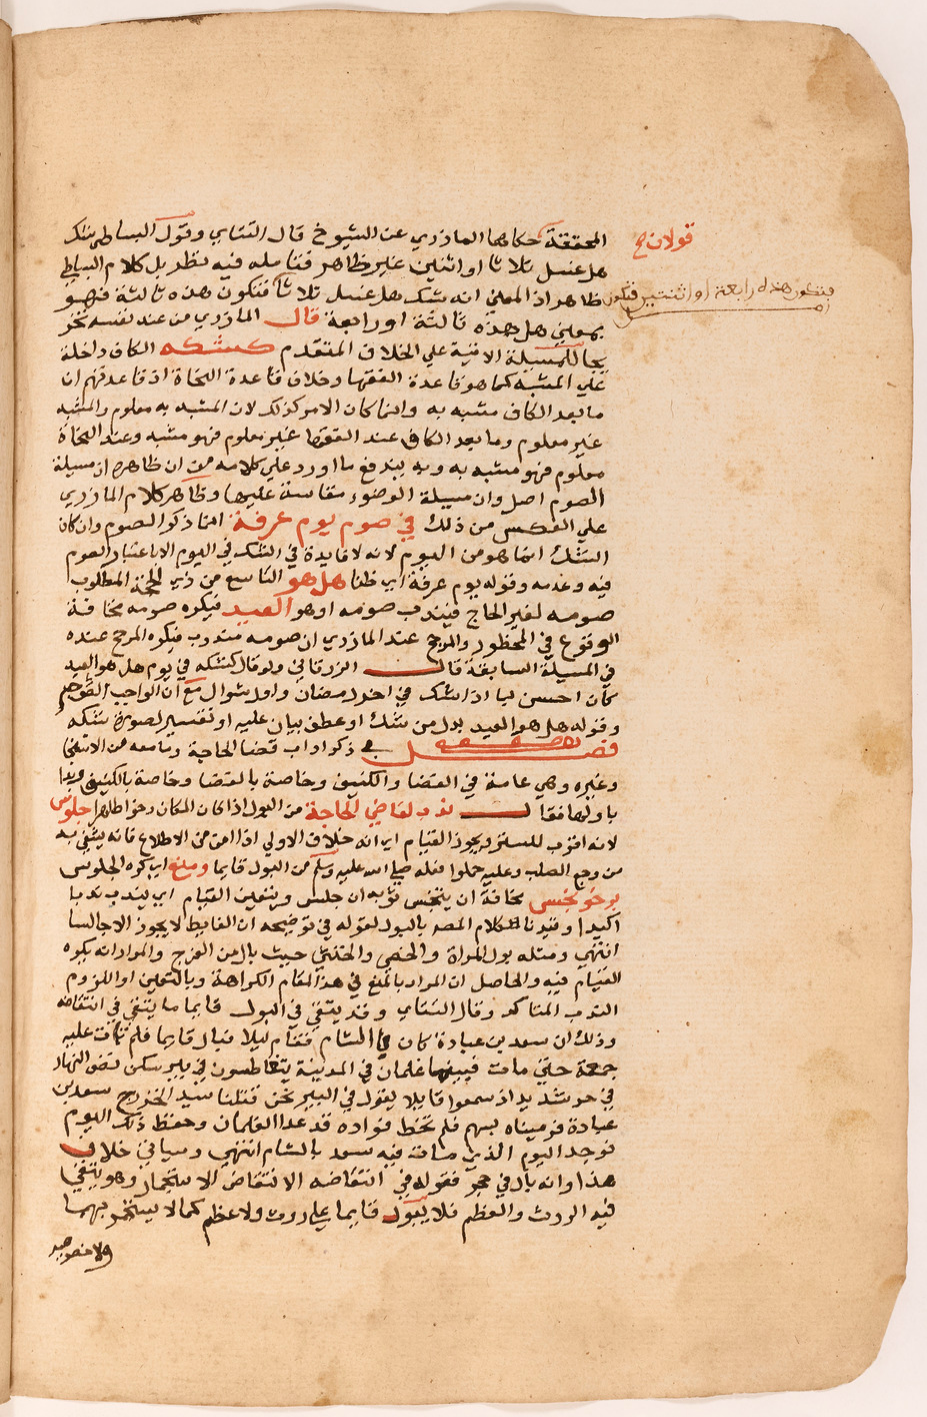 المحققة حكاهما المازري عن الشيوخ قال التتاي وقول البساطي شك
قولان
هل غسل ثلاثا او اثنين غير ظاهر فتامله فيه نظر بل كلام البساطي
ظاهر اذ المعني انه شك هل غسل ثلاثا فتكون هذه ثالثة فهو
فتكون هذه رابعة او اثنتين فتكون
بمعني هل هذه ثالثة او رابعة قال المازري من عند نفسه
للمسيلة الاتية علي الخلاف المتقدم كشكه الكاف داخلة
علي المشبه كما هو قاعدة الفقها وخلاف قاعدة النحاة اذ قاعدتهم ان
ما بعد الكاف مشبه به وانما كان الامر كذلك لان المشبه به معلوم والمشبه
غير معلوم وما بعد الكاف عند الفقها غير معلوم فهو مشبه وعند النحاة
معلوم فهو مشبه به وبه يندفع ما اورد علي كلامه من ان ظاهره ان مسيلة
الصوم اصل وان مسيلة الوضوء مقاسة عليها وظاهر كلام المازري
علي العكس من ذلك في صوم يوم عرفة انما ذكر الصوم وان كان
الشك انما هو من اليوم لانه لا فايدة في الشك في اليوم الا باعتبار الصوم
فيه وعدمه وقوله يوم عرفة اي ظنا هل هو التاسع من ذي الحجة المطلوب
صومه لغير الحاج فيندب صومه او هو العيد فيكره صومه مخافة
الوقوع في المحظور والمرجح عند المازري ان صومه مندوب فيكره المرجح عنده
في المسيلة السابقة قال الزرقاني ولو قال كشكه في يوم هل هو العيد
كان احسن ليا اذا شك في اخر رمضان واول شوال مع ان الواجب الصوم
وقوله هل هو العيد بدل من شك او عطف بيان عليه او تفسير لصورة شكه
فصل ذكر اداب قضا الحاجة وما معه من الاستنجا
وغيره وهي عامة في القضا والكنيف وخاصة بالقضا وخاصة بالكنيف وبدا
باولها فقال ندب لقاضي الحاجة من البول اذا كان المكان رخوا طاهرا جلوس
لانه اقرب للستر ويجوز القيام اي انه خلاف الاولي اذا امن من الاطلاع فانه يشفي به
من وجع الصلب وعليه حملوا فعله صلي الله عليه وسلم من البول قايما ومنع اي يكره الجلوس
برخو نجس مخافة ان يتنجس ثوبه ان جلس ويتعين القيام اي يندب ندبا
اكيدا وقيدنا كلام المص بالبول لقوله في توضيحه ان الغايط لا يجوز الا جالسا
انتهي ومثله بول المراة والخصي والخنثي حيث بال من الفرج والمراد انه يكره
القيام فيه والحاصل ان المراد بالمنع في هذا المقام الكراهة وبالتعين او اللزوم
الندب المتاكد وقال التتاي وقد يتقي في البول قايما ما يتقي في انتقاضه
وذلك ان سعد بن عبادة كان في الشام فقام ليلا فبال قايما فلم
حتي مات فبينما غلمان في المدينة يتغاطسون في بير سكن نصف النهار
في حر شديد اذ سمعوا قايلا يقول في البير نحن قتلنا سيد الخزرج سعد بن
عبادة فرميناه بسهم فلم تخط فؤاده فذعر الغلمان وحفظ ذلك اليوم
فوجد اليوم الذي مات فيه سعد بالشام انتهي وسياتي خلاف
هذا وانه بال في جحر فقوله في انتقاضه الانتقاض الاستجمار وهو يتقي
فيه الروث والعظم فلا يبول قايما علي روث ولا عظم كما لا يستجمر بهما